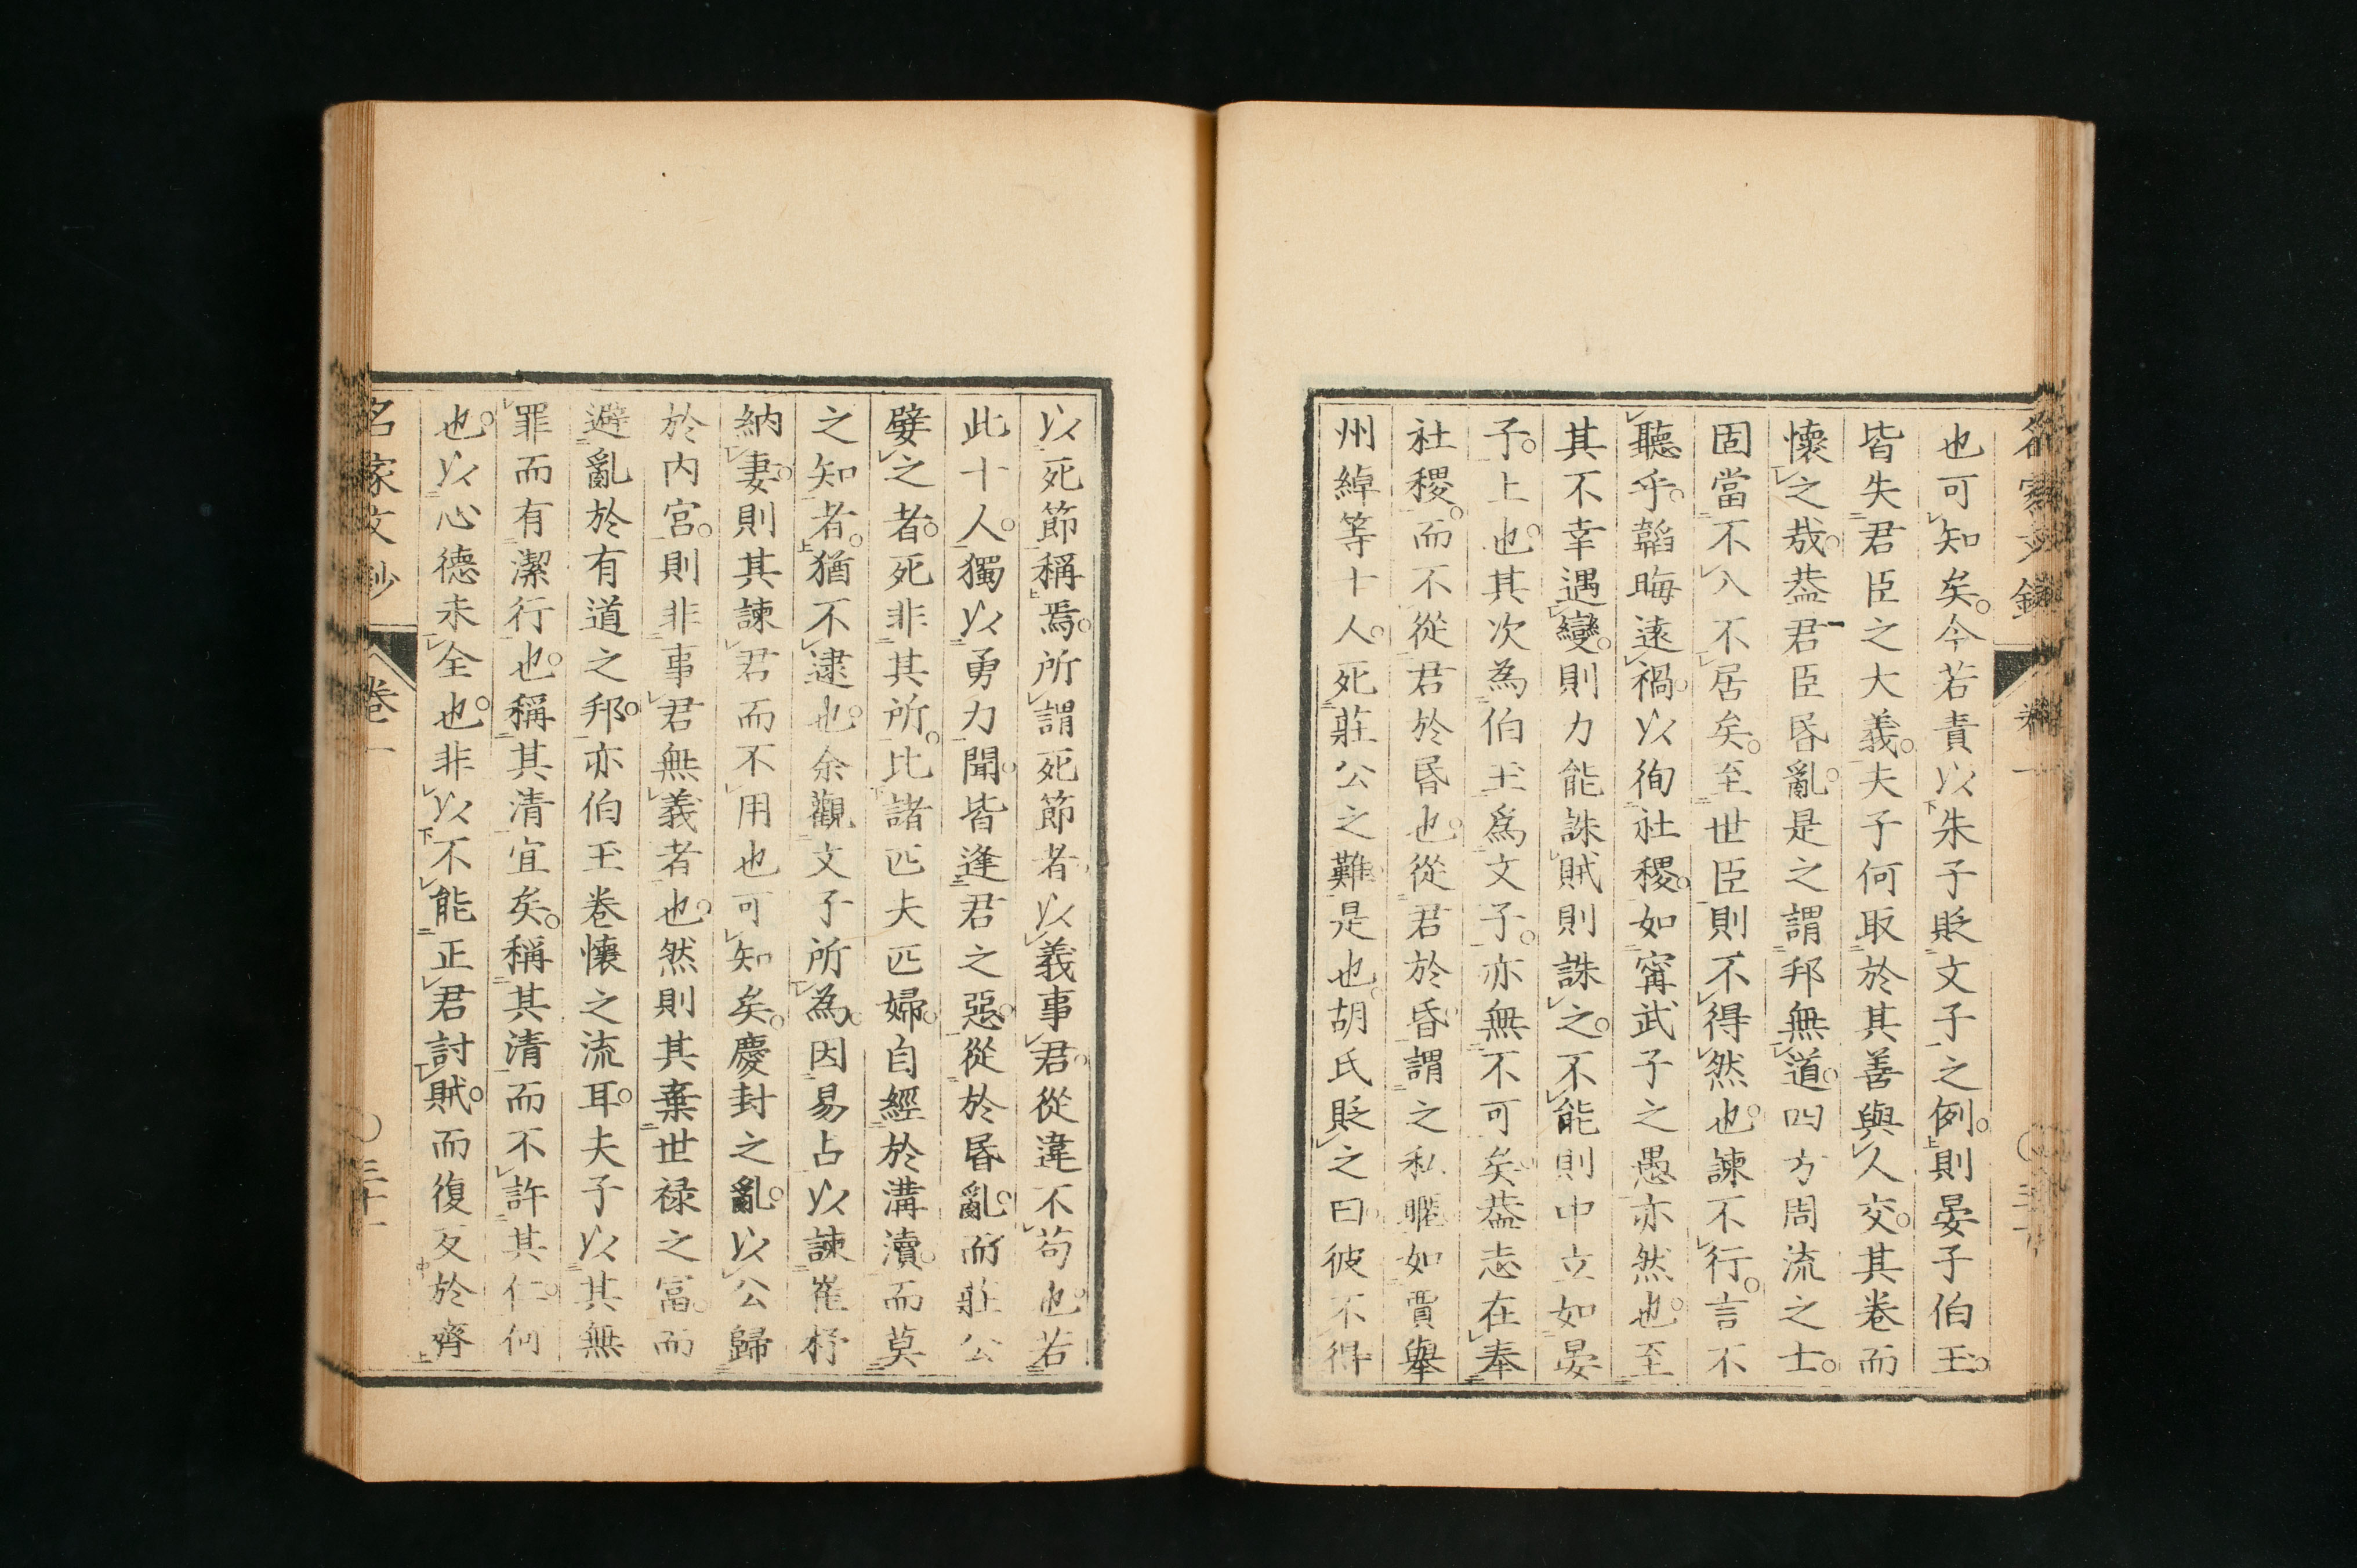 也可知矣。今若責以朱子貶文子之例。則晏子伯玉。
皆失君臣之大義。夫子何取於其善與人交。其卷而
懷之哉。葢君臣昏亂。是之謂邦無道。四方周流之士。
固當不入不居矣。至世臣則不得然也。諫不行。言不
聽乎。韜晦遠禍。以徇社稷。如甯武子之愚亦然也。至
其不幸遇變。則力能誅賊則誅之。不能則中立如晏
子。上也。其次為伯玉。爲文子。亦無不可矣。葢志在奉
社稷。而不從君於昏也。從君於昏。謂之私暱。如賈舉
州綽等十人。死莊公之難。是也。胡氏貶之曰。彼不得
以死節稱焉。所謂死節者。以義事君。從違不苟也。若
此十人。獨以勇力聞。皆逢君之惡。從於昏亂。而莊公
嬖之者。死非其所。比諸匹夫匹婦。自經於溝瀆。而莫
之知者。猶不逮也。余觀文子所為。因易占以諫崔杼
納妻。則其諫君而不用也可知矣。慶封之亂。以公歸
於内宮。則非事君無義者也。然則其棄世禄之富。而
避亂於有道之邦。亦伯玉卷懷之流耳。夫子以其無
罪而有潔行也。稱其清宜矣。稱其清而不許其仁。何
也。以心德未全也。非以不能正君討賊。而復反於齊
名家文鈔 卷一 〇三十一